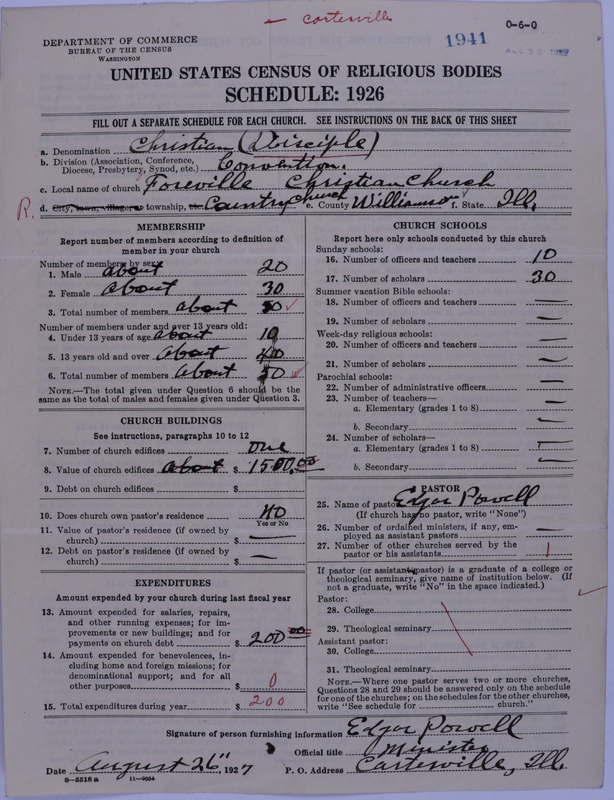 – Carterville
0-6-0
DEPARTMENT OF COMMERCE
BUREAU OF THE CENSUS
WASHINGTON
1941
UNITED STATES CENSUS OF RELIGIOUS BODIES
SCHEDULE: 1926
FILL OUT A SEPARATE SCHEDULE FOR EACH CHURCH. SEE INSTRUCTIONS ON THE BACK OF THIS SHEET
a. Denomination Christian (Disciple)
b. Division (Association, Conference, Diocese, Presbytery, Synod, etc.) Convention.
c. Local name of church Foreville Christian Church
R. d. City, town, village, or township, etc. Country Church e. County Williamson f. State Ill.
MEMBERSHIP
Report number of members according to definition of
member in your church
Number of members by sex:
1. Male about 20
2. Female about 30
3. Total number of members about 50 ✓
Number of members under and over 13 years old:
4. Under 13 years of age about 10
5. 13 years old and over about 40
6. Total number of members about 50 ✓
NOTE.—The total given under Question 6 should be the
same as the total of males and females given under Question 3.
CHURCH BUILDINGS
See instructions, paragraphs 10 to 12
7. Number of church edifices one
8. Value of church edifices about $ 1500.00
9. Debt on church edifices $
10. Does church own pastor's residence No
Yes or No
11. Value of pastor's residence (if owned by
church) $ —
12. Debt on pastor's residence (if owned by
church) $ —
EXPENDITURES
Amount expended by your church during last fiscal year
13. Amount expended for salaries, repairs,
and other running expenses; for im-
provements or new buildings; and for
payments on church debt $ 200 00
14. Amount expended for benevolences, in-
cluding home and foreign missions; for
denominational support; and for all
other purposes $ 0
15. Total expenditures during year $ 200
CHURCH SCHOOLS
Report here only schools conducted by this church
Sunday schools:
16. Number of officers and teachers 10
17. Number of scholars 30
Summer vacation Bible schools:
18. Number of officers and teachers —
19. Number of scholars —
Week-day religious schools:
20. Number of officers and teachers —
21. Number of scholars —
Parochial schools:
22. Number of administrative officers —
23. Number of teachers—
a. Elementary (grades 1 to 8) —
b. Secondary —
24. Number of scholars—
a. Elementary (grades 1 to 8) —
b. Secondary —
PASTOR
25. Name of pastor Edgar Powell
(If church has no pastor, write "None")
26. Number of ordained ministers, if any, em-
ployed as assistant pastors —
27. Number of other churches served by the
pastor or his assistants 1
If pastor (or assistant pastor) is a graduate of a college or
theological seminary, give name of institution below. (If
not a graduate, write "No" in the space indicated.) ✓
Pastor:
28. College
29. Theological seminary
Assistant pastor:
30. College
31. Theological seminary
NOTE.—Where one pastor serves two or more churches,
Questions 28 and 29 should be answered only on the schedule
for one of the churches; on the schedules for the other churches,
write "See schedule for church."
Signature of person furnishing information Edgar Powell
Official title Minister
Date August 26", 1927 P. O. Address Carterville, Ill.
6—5518 a 11—9054